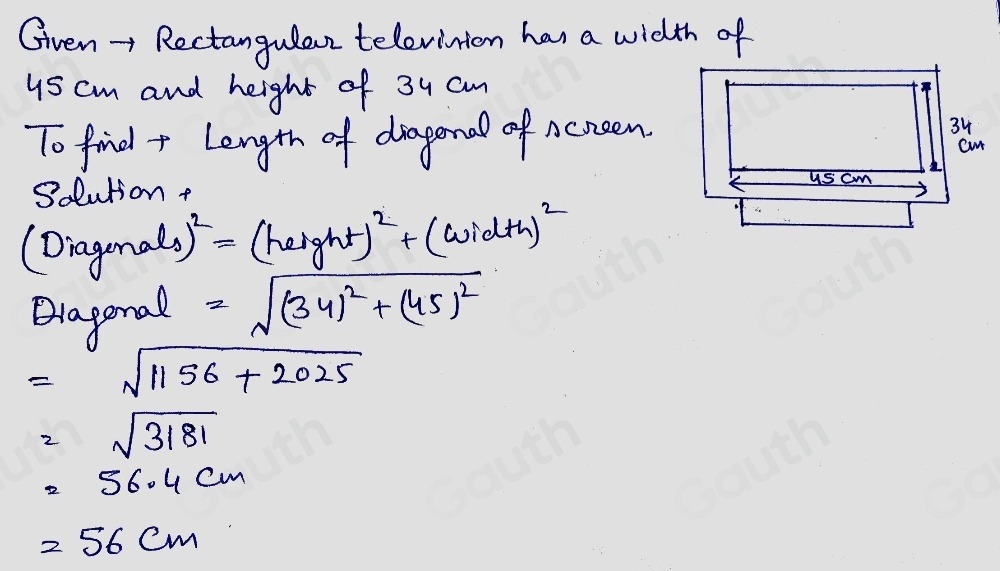 Given → Rectangular television has a width of
45 cm and height of 34 cm
To find → Length of diagonal of screen.
Solution →
(Diagonals)² = (height)² + (width)²
Diagonal = √(34)² + (45)²
= √1156 + 2025
= √3181
= 56.4 cm
= 56 cm
34
cm
45 cm
Gauth